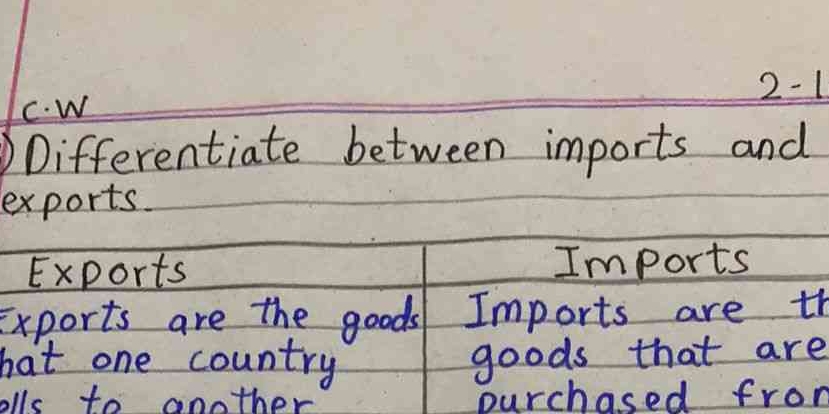 C.W 2-1
) Differentiate between imports and
exports.
Exports Imports
Exports are the goods Imports are th
hat one country goods that are
ells to another purchased from